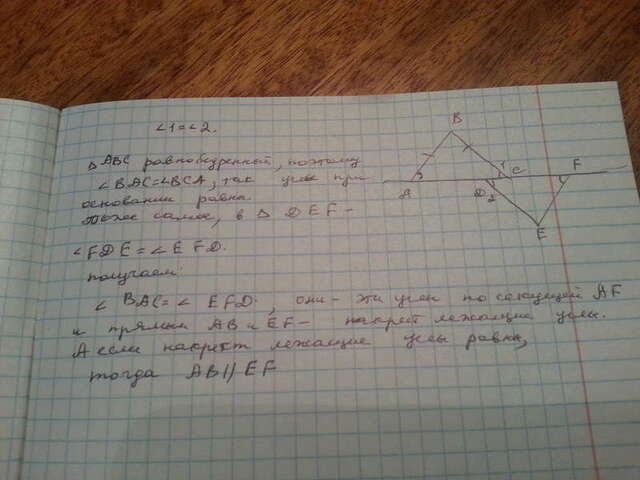 ∠1=∠2.
△ABC равнобедренный, поэтому
∠BAC=∠BCA, так углы при
основании равны.
Тоже самое, в △ DEF –
∠FDE = ∠EFD.
получаем:
∠ BAC = ∠ EFD, они – эти углы по секущей AF
и прямым AB и EF – накрест лежащие углы.
А если накрест лежащие углы равны,
тогда AB || EF
B
1
C
F
A
D
2
E